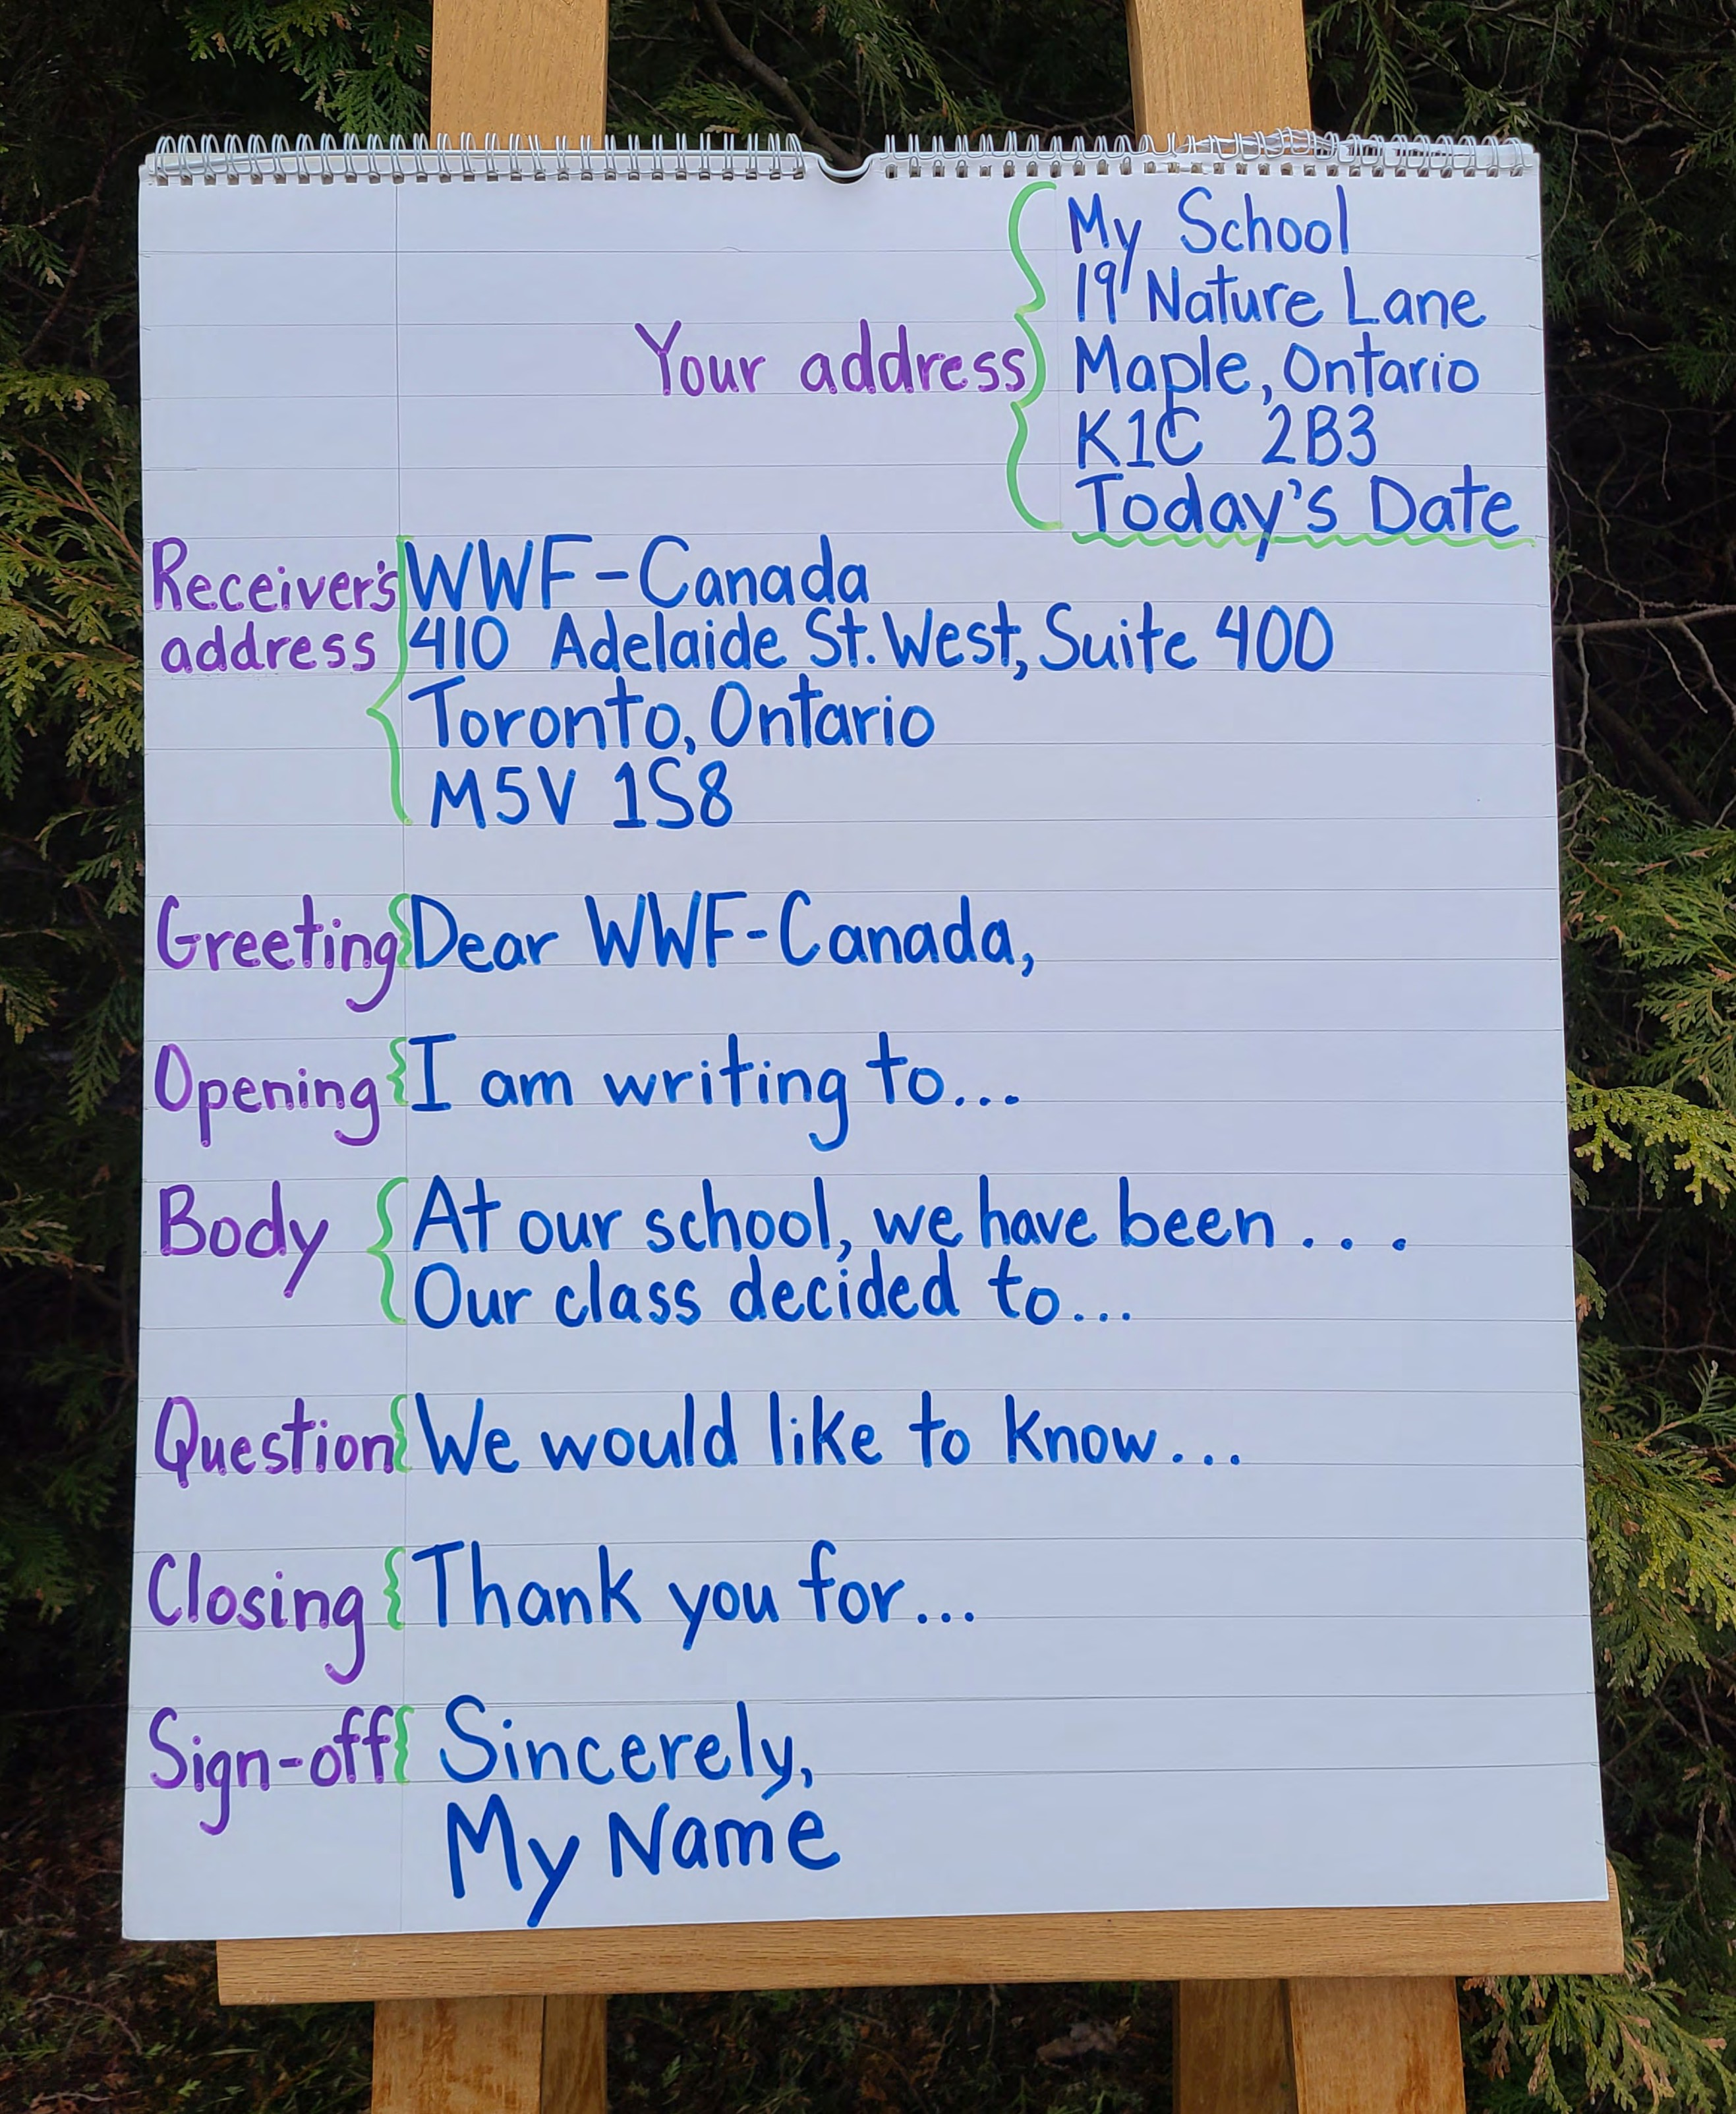 My School
19 Nature Lane
Your address Maple, Ontario
K1C 2B3
Today's Date
Receiver's WWF-Canada
address 410 Adelaide St. West, Suite 400
Toronto, Ontario
M5V 1S8
Greeting Dear WWF-Canada,
Opening I am writing to...
Body At our school, we have been ...
Our class decided to...
Question We would like to know...
Closing Thank you for...
Sign-off Sincerely,
My Name